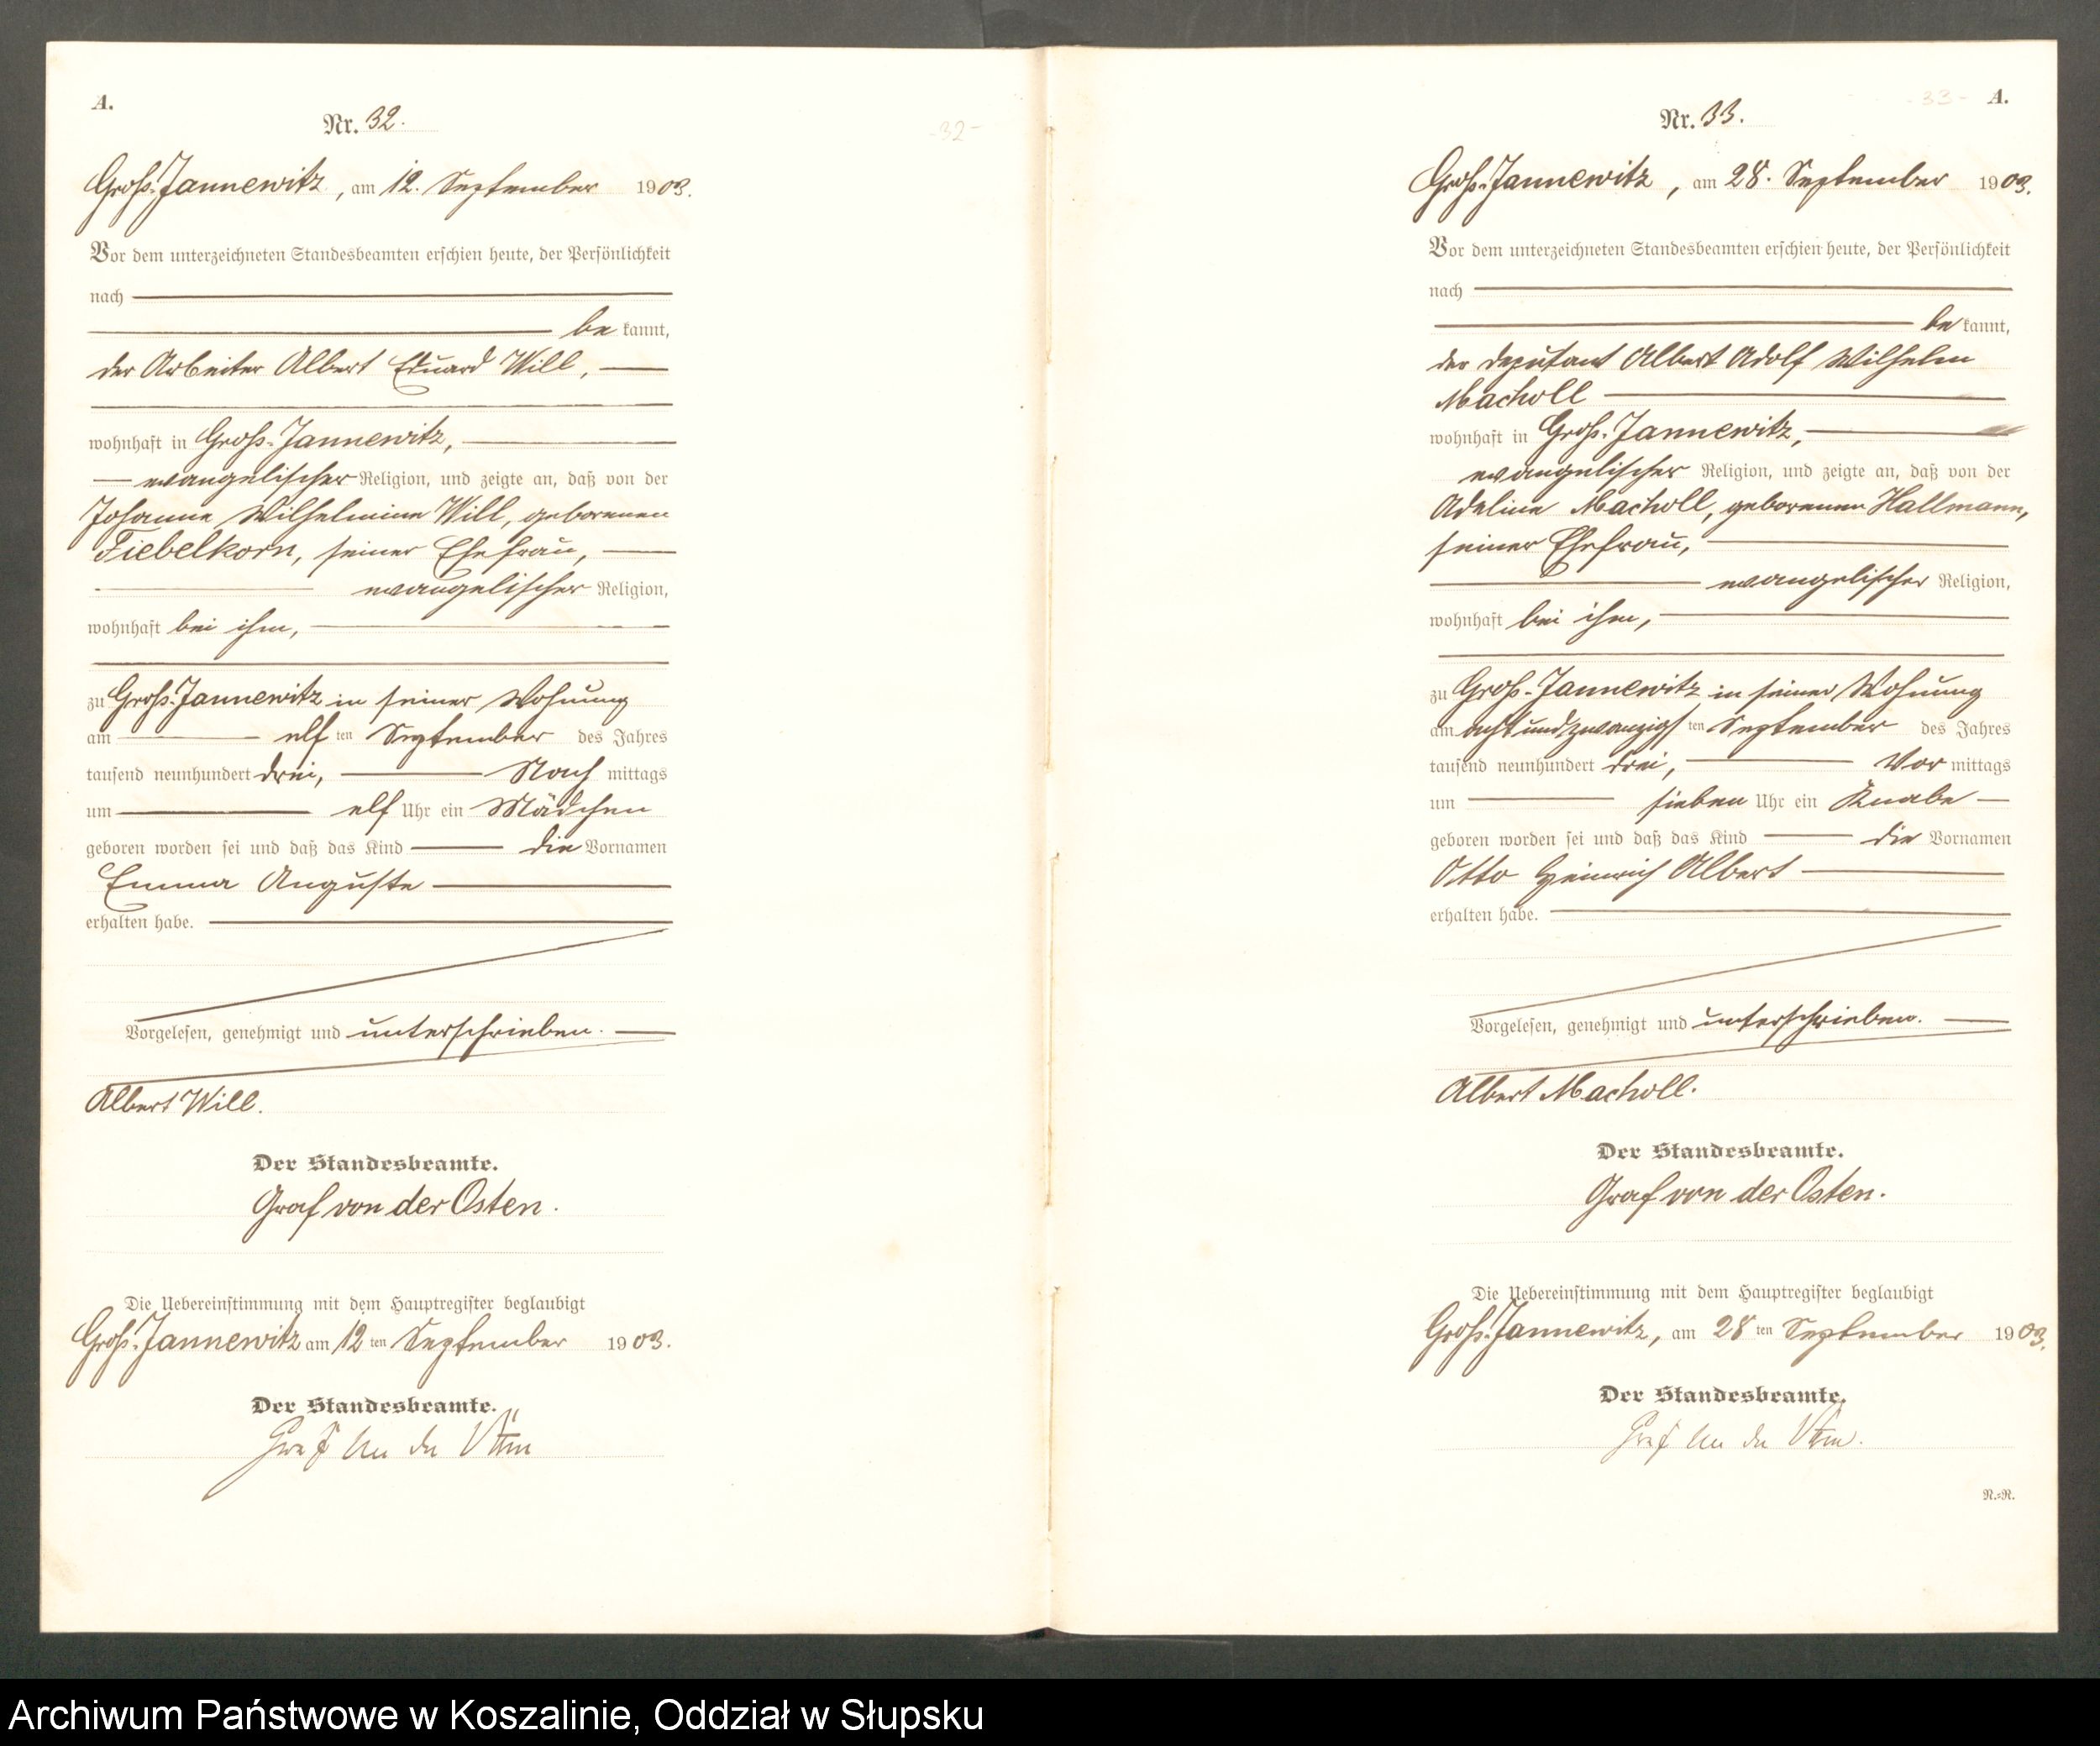 A.
Nr. 32.
-32-
Groß-Jannewitz, am 12. September 1903.
Vor dem unterzeichneten Standesbeamten erschien heute, der Persönlichkeit
nach
be kannt,
der Arbeiter Albert Eduard Will,
wohnhaft in Groß-Jannewitz,
evangelischer Religion, und zeigte an, daß von der
Johanne Wilhelmine Will, geborenen
Fiebelkorn, seiner Ehefrau,
evangelischer Religion,
wohnhaft bei ihm,
zu Groß-Jannewitz in seiner Wohnung
am elf ten September des Jahres
tausend neunhundert drei, Nach mittags
um elf Uhr ein Mädchen
geboren worden sei und daß das Kind die Vornamen
Emma Auguste
erhalten habe.
Vorgelesen, genehmigt und unterschrieben.
Albert Will.
Der Standesbeamte.
Graf von der Osten.
Die Uebereinstimmung mit dem Hauptregister beglaubigt
Groß-Jannewitz am 12 ten September 1903.
Der Standesbeamte.
Graf von der Osten
-33- A.
Nr. 33.
Groß-Jannewitz, am 28. September 1903.
Vor dem unterzeichneten Standesbeamten erschien heute, der Persönlichkeit
nach
be kannt,
der Deputant Albert Adolf Wilhelm
Macholl
wohnhaft in Groß-Jannewitz,
evangelischer Religion, und zeigte an, daß von der
Adeline Macholl, geborenen Hallmann,
seiner Ehefrau,
evangelischer Religion,
wohnhaft bei ihm,
zu Groß-Jannewitz in seiner Wohnung
am acht und zwanzigs ten September des Jahres
tausend neunhundert drei, Vor mittags
um sieben Uhr ein Knabe
geboren worden sei und daß das Kind die Vornamen
Otto Heinrich Albert
erhalten habe.
Vorgelesen, genehmigt und unterschrieben.
Albert Macholl.
Der Standesbeamte.
Graf von der Osten.
Die Uebereinstimmung mit dem Hauptregister beglaubigt
Groß-Jannewitz, am 28 ten September 1903.
Der Standesbeamte.
Graf von der Osten.
N.=N.
Archiwum Państwowe w Koszalinie, Oddział w Słupsku